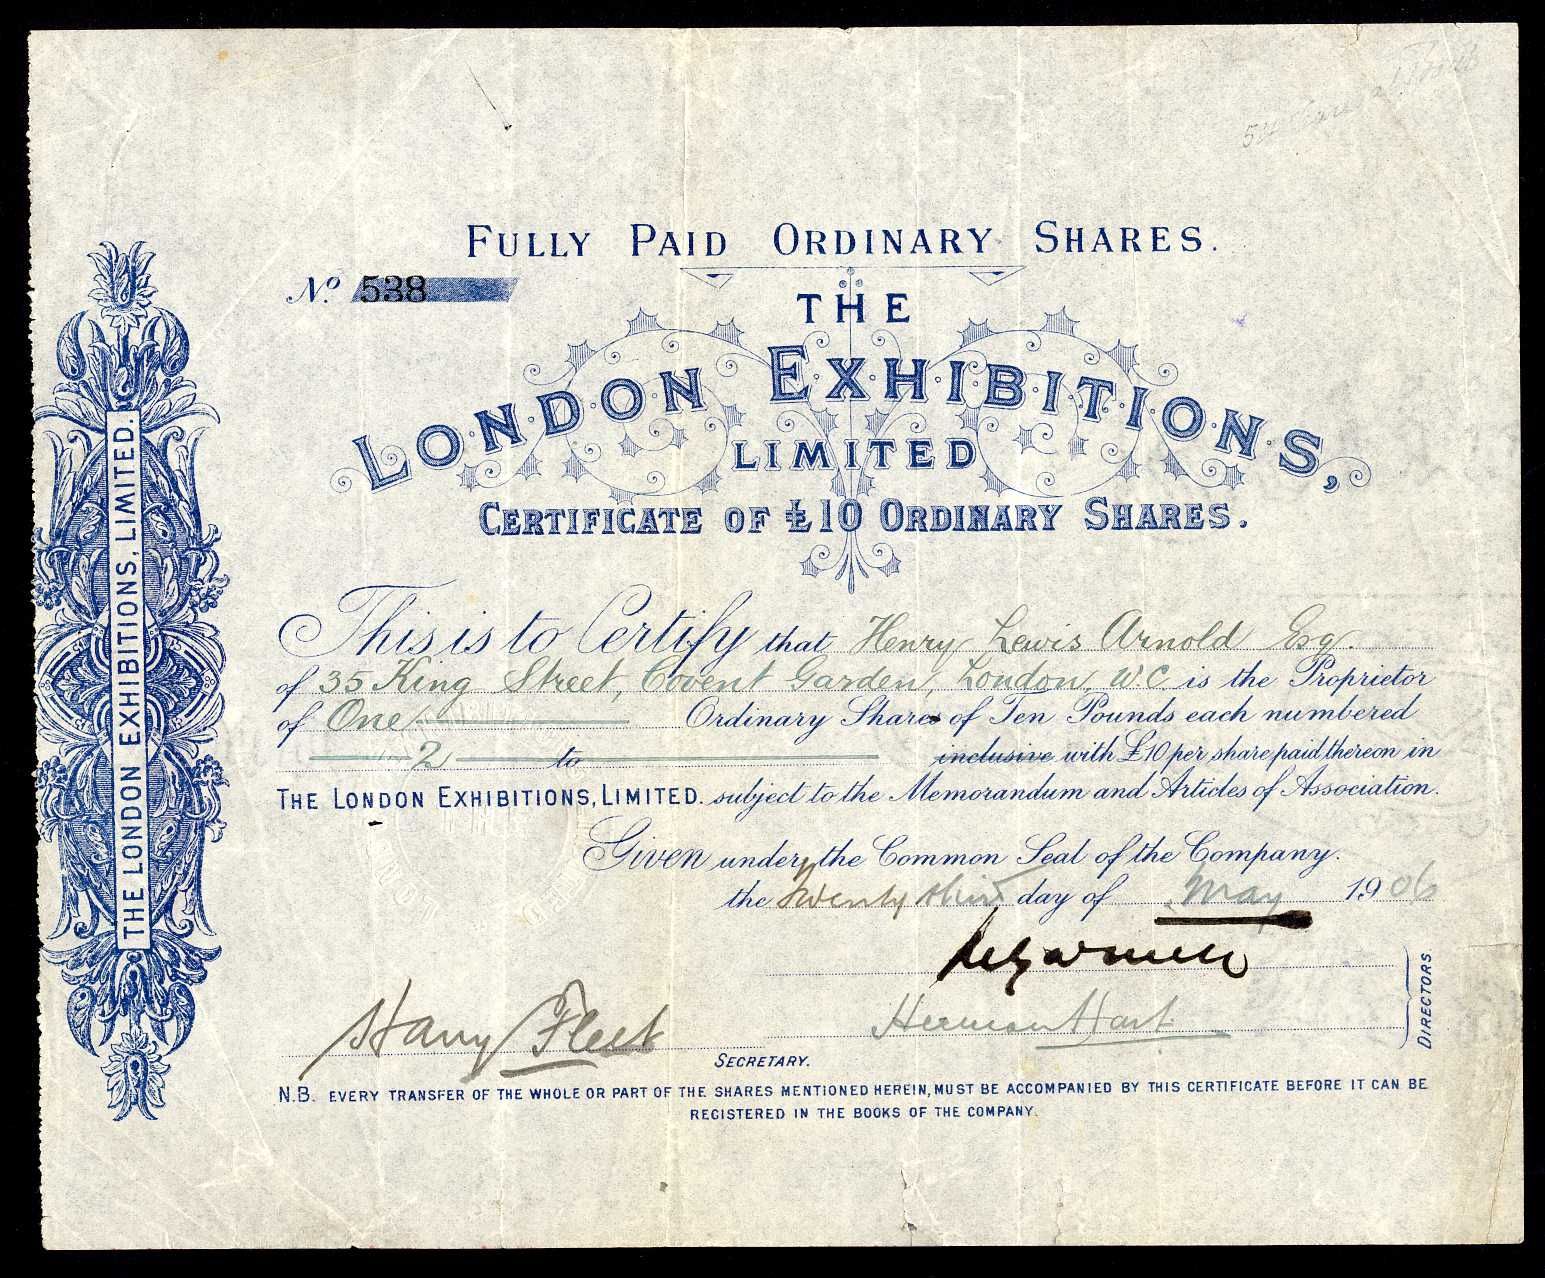 FULLY PAID ORDINARY SHARES.
No. 538
THE
LONDON EXHIBITIONS,
LIMITED
CERTIFICATE OF £10 ORDINARY SHARES.
This is to Certify that Henry Lewis Arnold Esq.
of 35 King Street, Covent Garden, London, W.C. is the Proprietor
of One Ordinary Shares of Ten Pounds each numbered
2 to inclusive with £10 per share paid thereon in
THE LONDON EXHIBITIONS, LIMITED. subject to the Memorandum and Articles of Association.
Given under the Common Seal of the Company.
the Twenty third day of May 1906
Harry Fleet
Herman Hart
SECRETARY.
DIRECTORS.
N.B. EVERY TRANSFER OF THE WHOLE OR PART OF THE SHARES MENTIONED HEREIN, MUST BE ACCOMPANIED BY THIS CERTIFICATE BEFORE IT CAN BE
REGISTERED IN THE BOOKS OF THE COMPANY.
THE LONDON EXHIBITIONS, LIMITED.